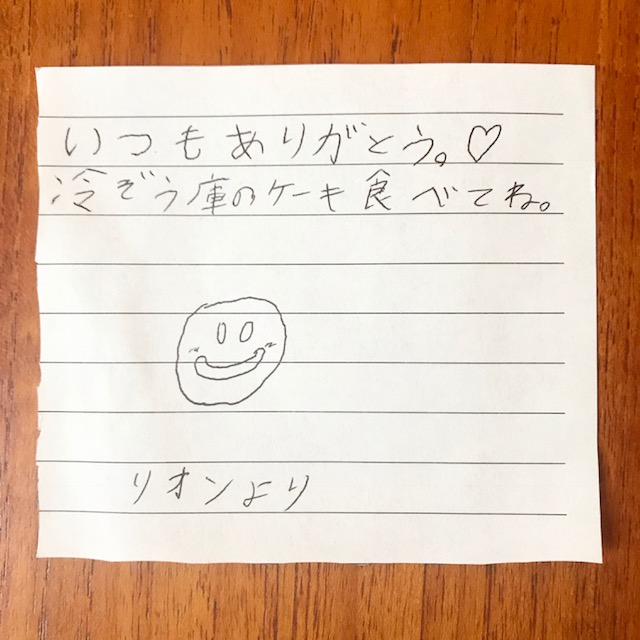 いつもありがとう。♡
冷ぞう庫のケーキ食べてね。
リオンより